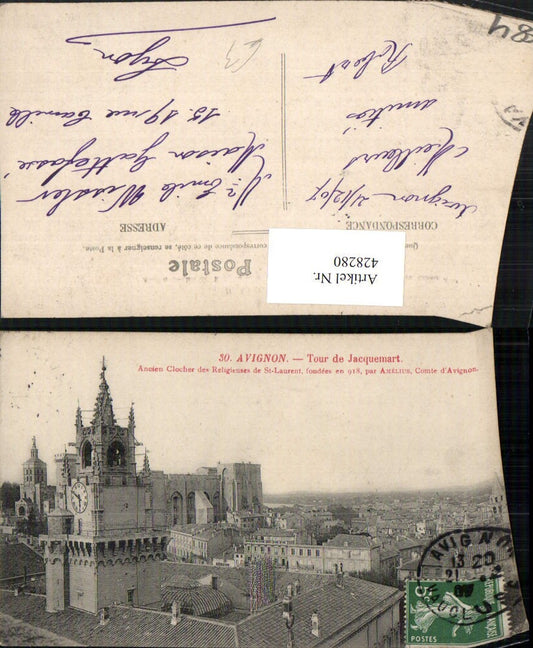 84
63
Lyon
15. 19 rue Camille
Maison Gattefossé
Mr Emile Wissler
ADRESSE
Robert
amitiés
Meilleurs
Avignon 21/12/07
CORRESPONDANCE
correspondance de ce côté, se renseigner à la Poste.
Postale
Artikel Nr.
428280
30. AVIGNON. — Tour de Jacquemart.
Ancien Clocher des Religieuses de St-Laurent, fondées en 918, par AMÉLIUS, Comte d'Avignon.
AVIGNON
13 20
21
07
VAUCLUSE
5
POSTES